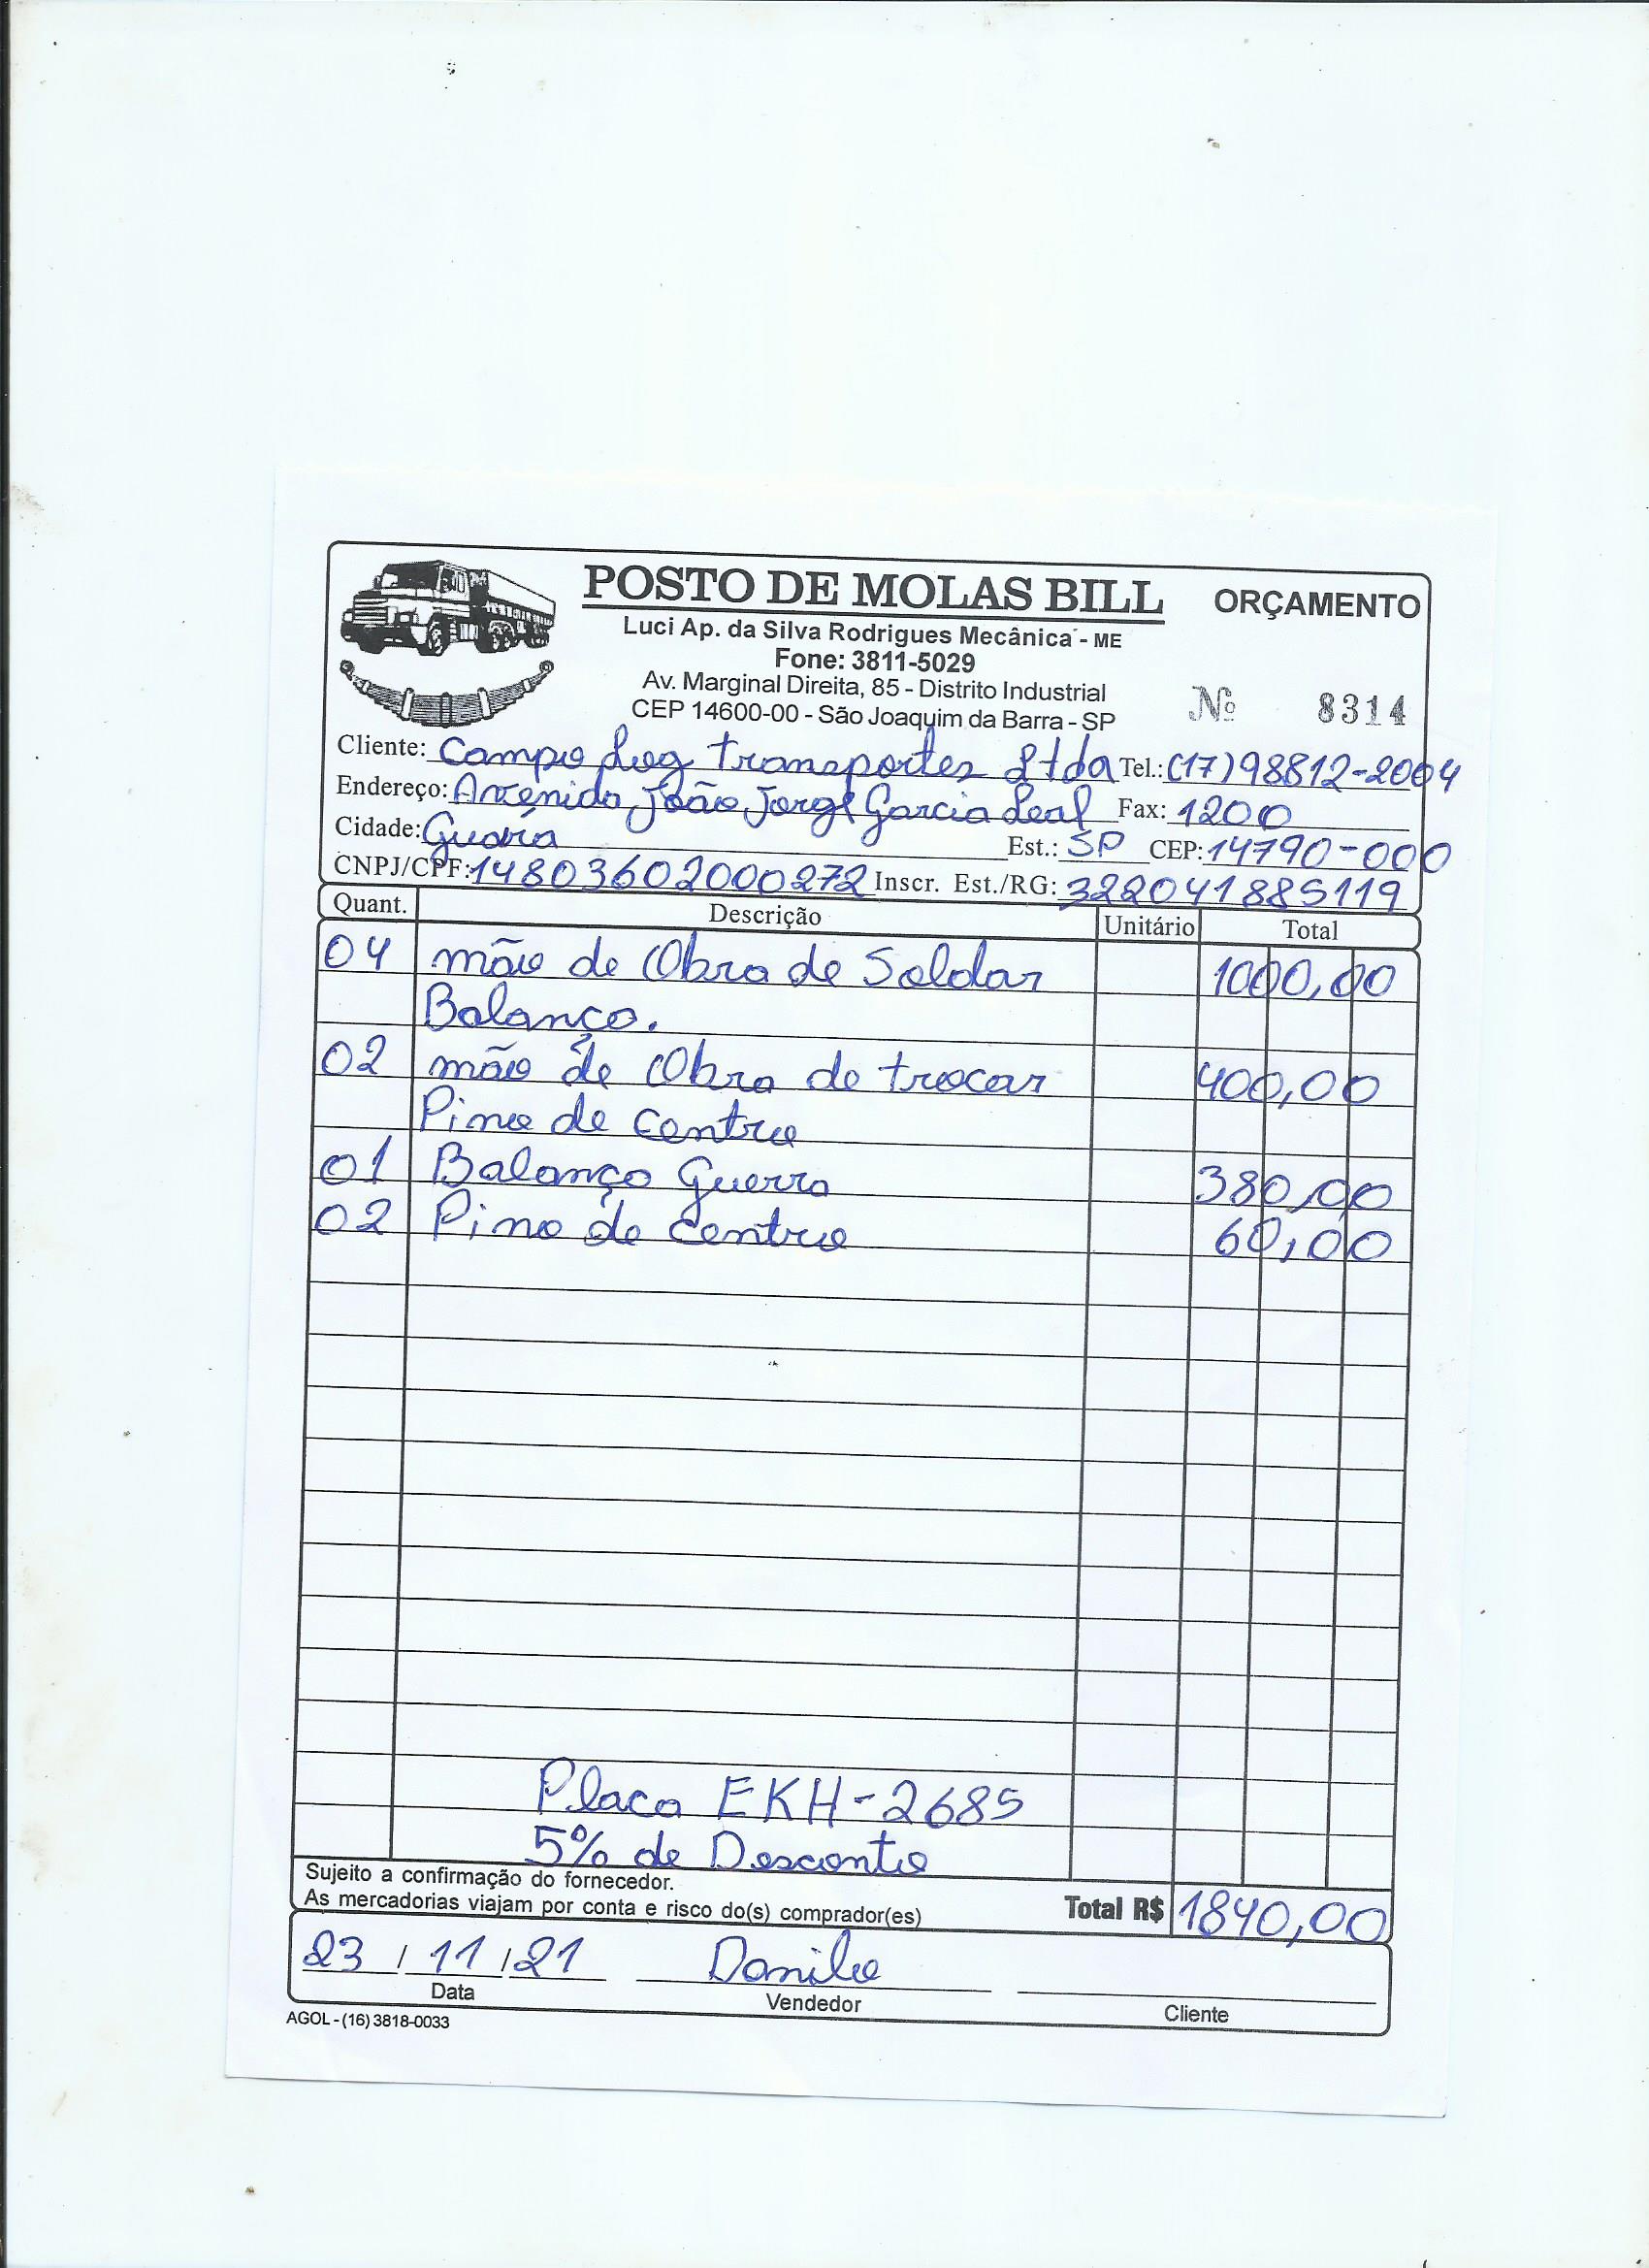 POSTO DE MOLAS BILL ORÇAMENTO
Luci Ap. da Silva Rodrigues Mecânica - ME
Fone: 3811-5029
Av. Marginal Direita, 85 - Distrito Industrial
CEP 14600-00 - São Joaquim da Barra - SP
Nº 8314
Cliente: Campo Log transportes Ltda Tel.: (17) 98812-2004
Endereço: Avenida João Jorge Garcia Leal Fax: 1200
Cidade: Guaíra Est.: SP CEP: 14790-000
CNPJ/CPF: 14803602000272 Inscr. Est./RG: 322041885119
Quant. Descrição Unitário Total
04 mão de Obra de Soldar 1000,00
Balanço.
02 mão de Obra de trocar 400,00
Pino de centro
01 Balanço Guerra 380,00
02 Pino de centro 60,00
Placa EKH-2685
5% de Desconto
Sujeito a confirmação do fornecedor.
As mercadorias viajam por conta e risco do(s) comprador(es) Total R$ 1840,00
23 / 11 / 21 Danilo
Data Vendedor Cliente
AGOL - (16) 3818-0033